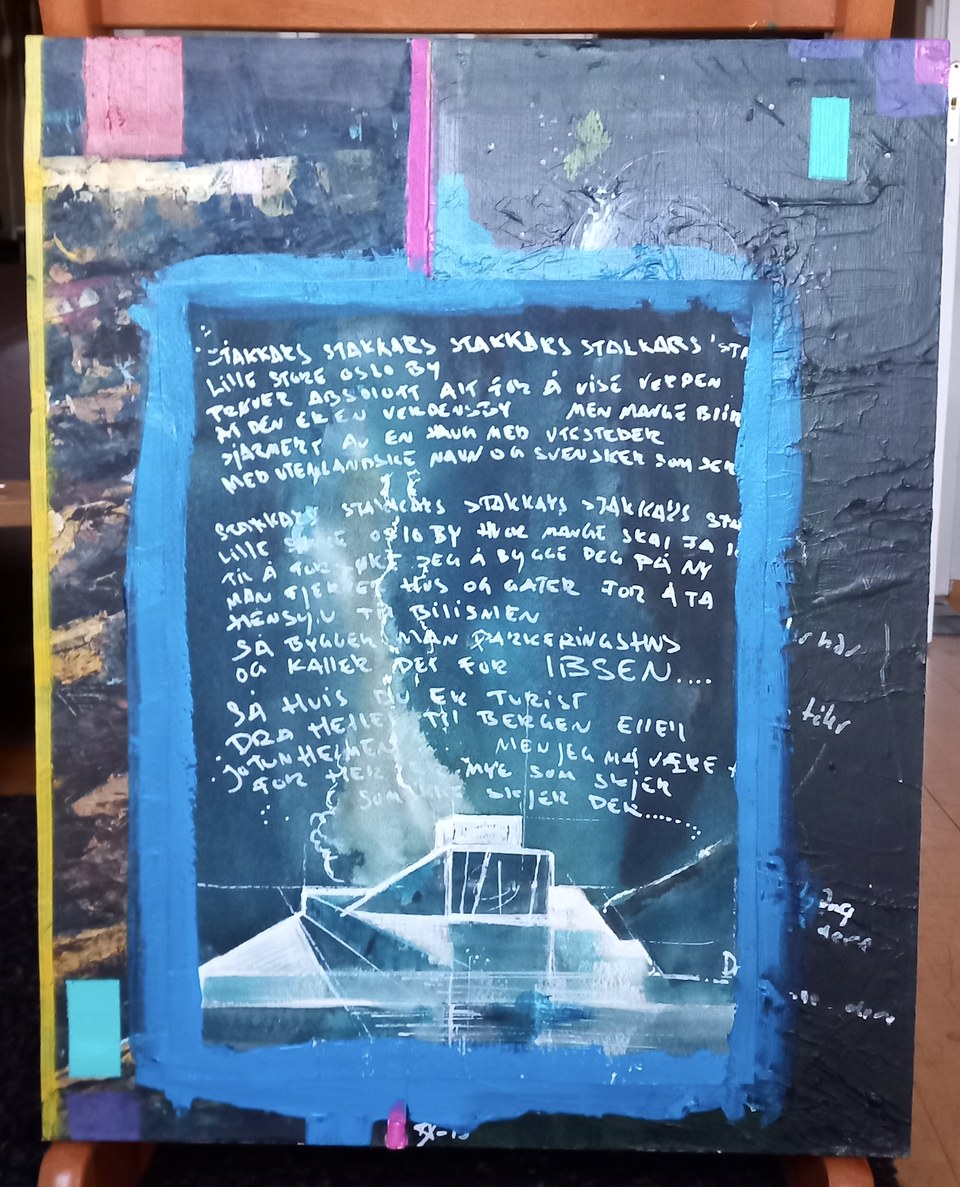 STAKKARS STAKKARS STAKKARS STAKKARS STA
LILLE STORE OSLO BY
PRØVER ABSOLUTT ALT FOR Å VISE VERDEN
AT DEN ER EN VERDENSBY MEN MANGE BLIR
SJARMERT AV EN HAUG MED UTESTEDER
MED UTENLANDSKE NAVN OG SVENSKER SOM SER
STAKKARS STAKKARS STAKKARS STAKKARS STA
LILLE STORE OSLO BY HVOR MANGE SKAL JA
TIL Å FORSØKE DEG Å BYGGE DEG PÅ NY
MAN FJERNET HUS OG GATER FOR Å TA
HENSYN TIL BILISMEN
SÅ BYGGER MAN PARKERINGSHUS
OG KALLER DET FOR IBSEN....
SÅ HVIS DU ER TURIST
DRA HELLER TIL BERGEN ELLER
JOTUNHEIMEN MEN JEG MÅ VÆRE
FOR HER ER MYE SOM SKJER
SOM IKKE SKJER DER.......
D